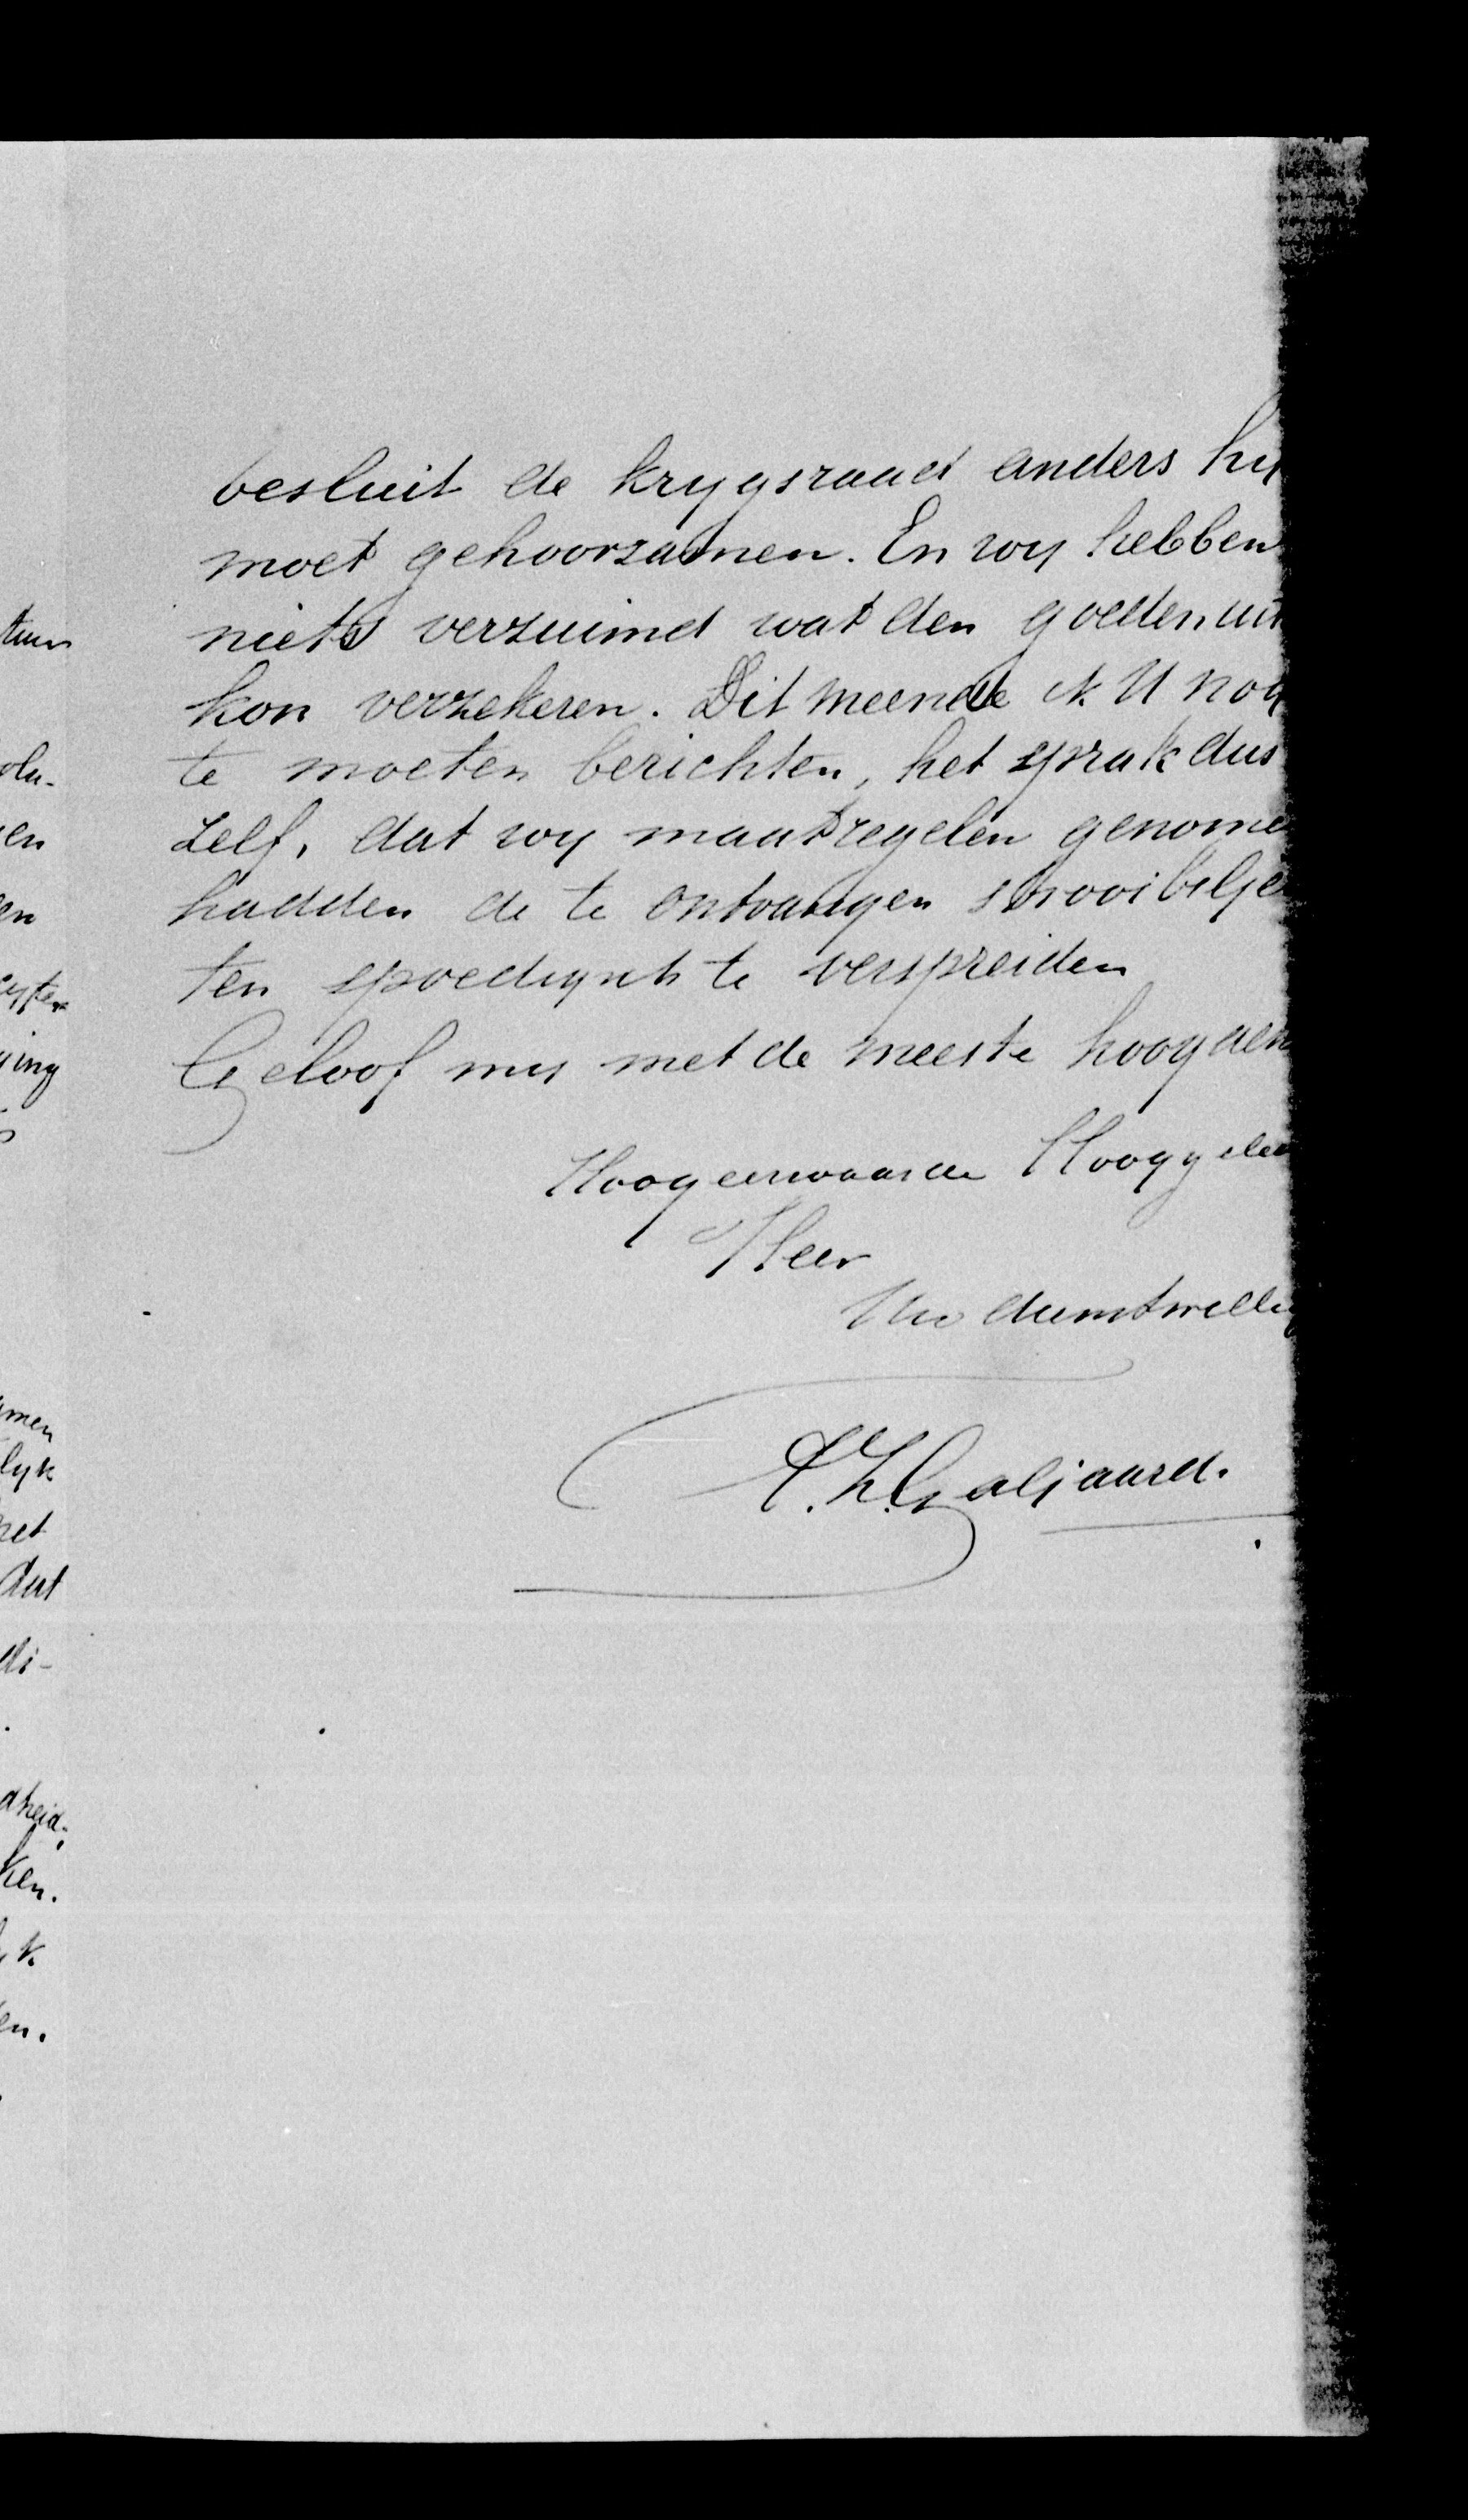 besluit de krygsraad anders hy
moet gehoorzamen. En wy hebben
niets verzuimd wat den goeden uit
kon verzekeren. Dit meende ik U nog
te moeten berichten, het sprak dus
zelf, dat wy maatregelen genome
hadden de te ontvangen strooibilje
ten spoedigste te verspreiden
Geloof my met de meeste hoogach
Hoogeerwaarde Hooggelee
Heer
Uw dienstwillig
Galjaard.